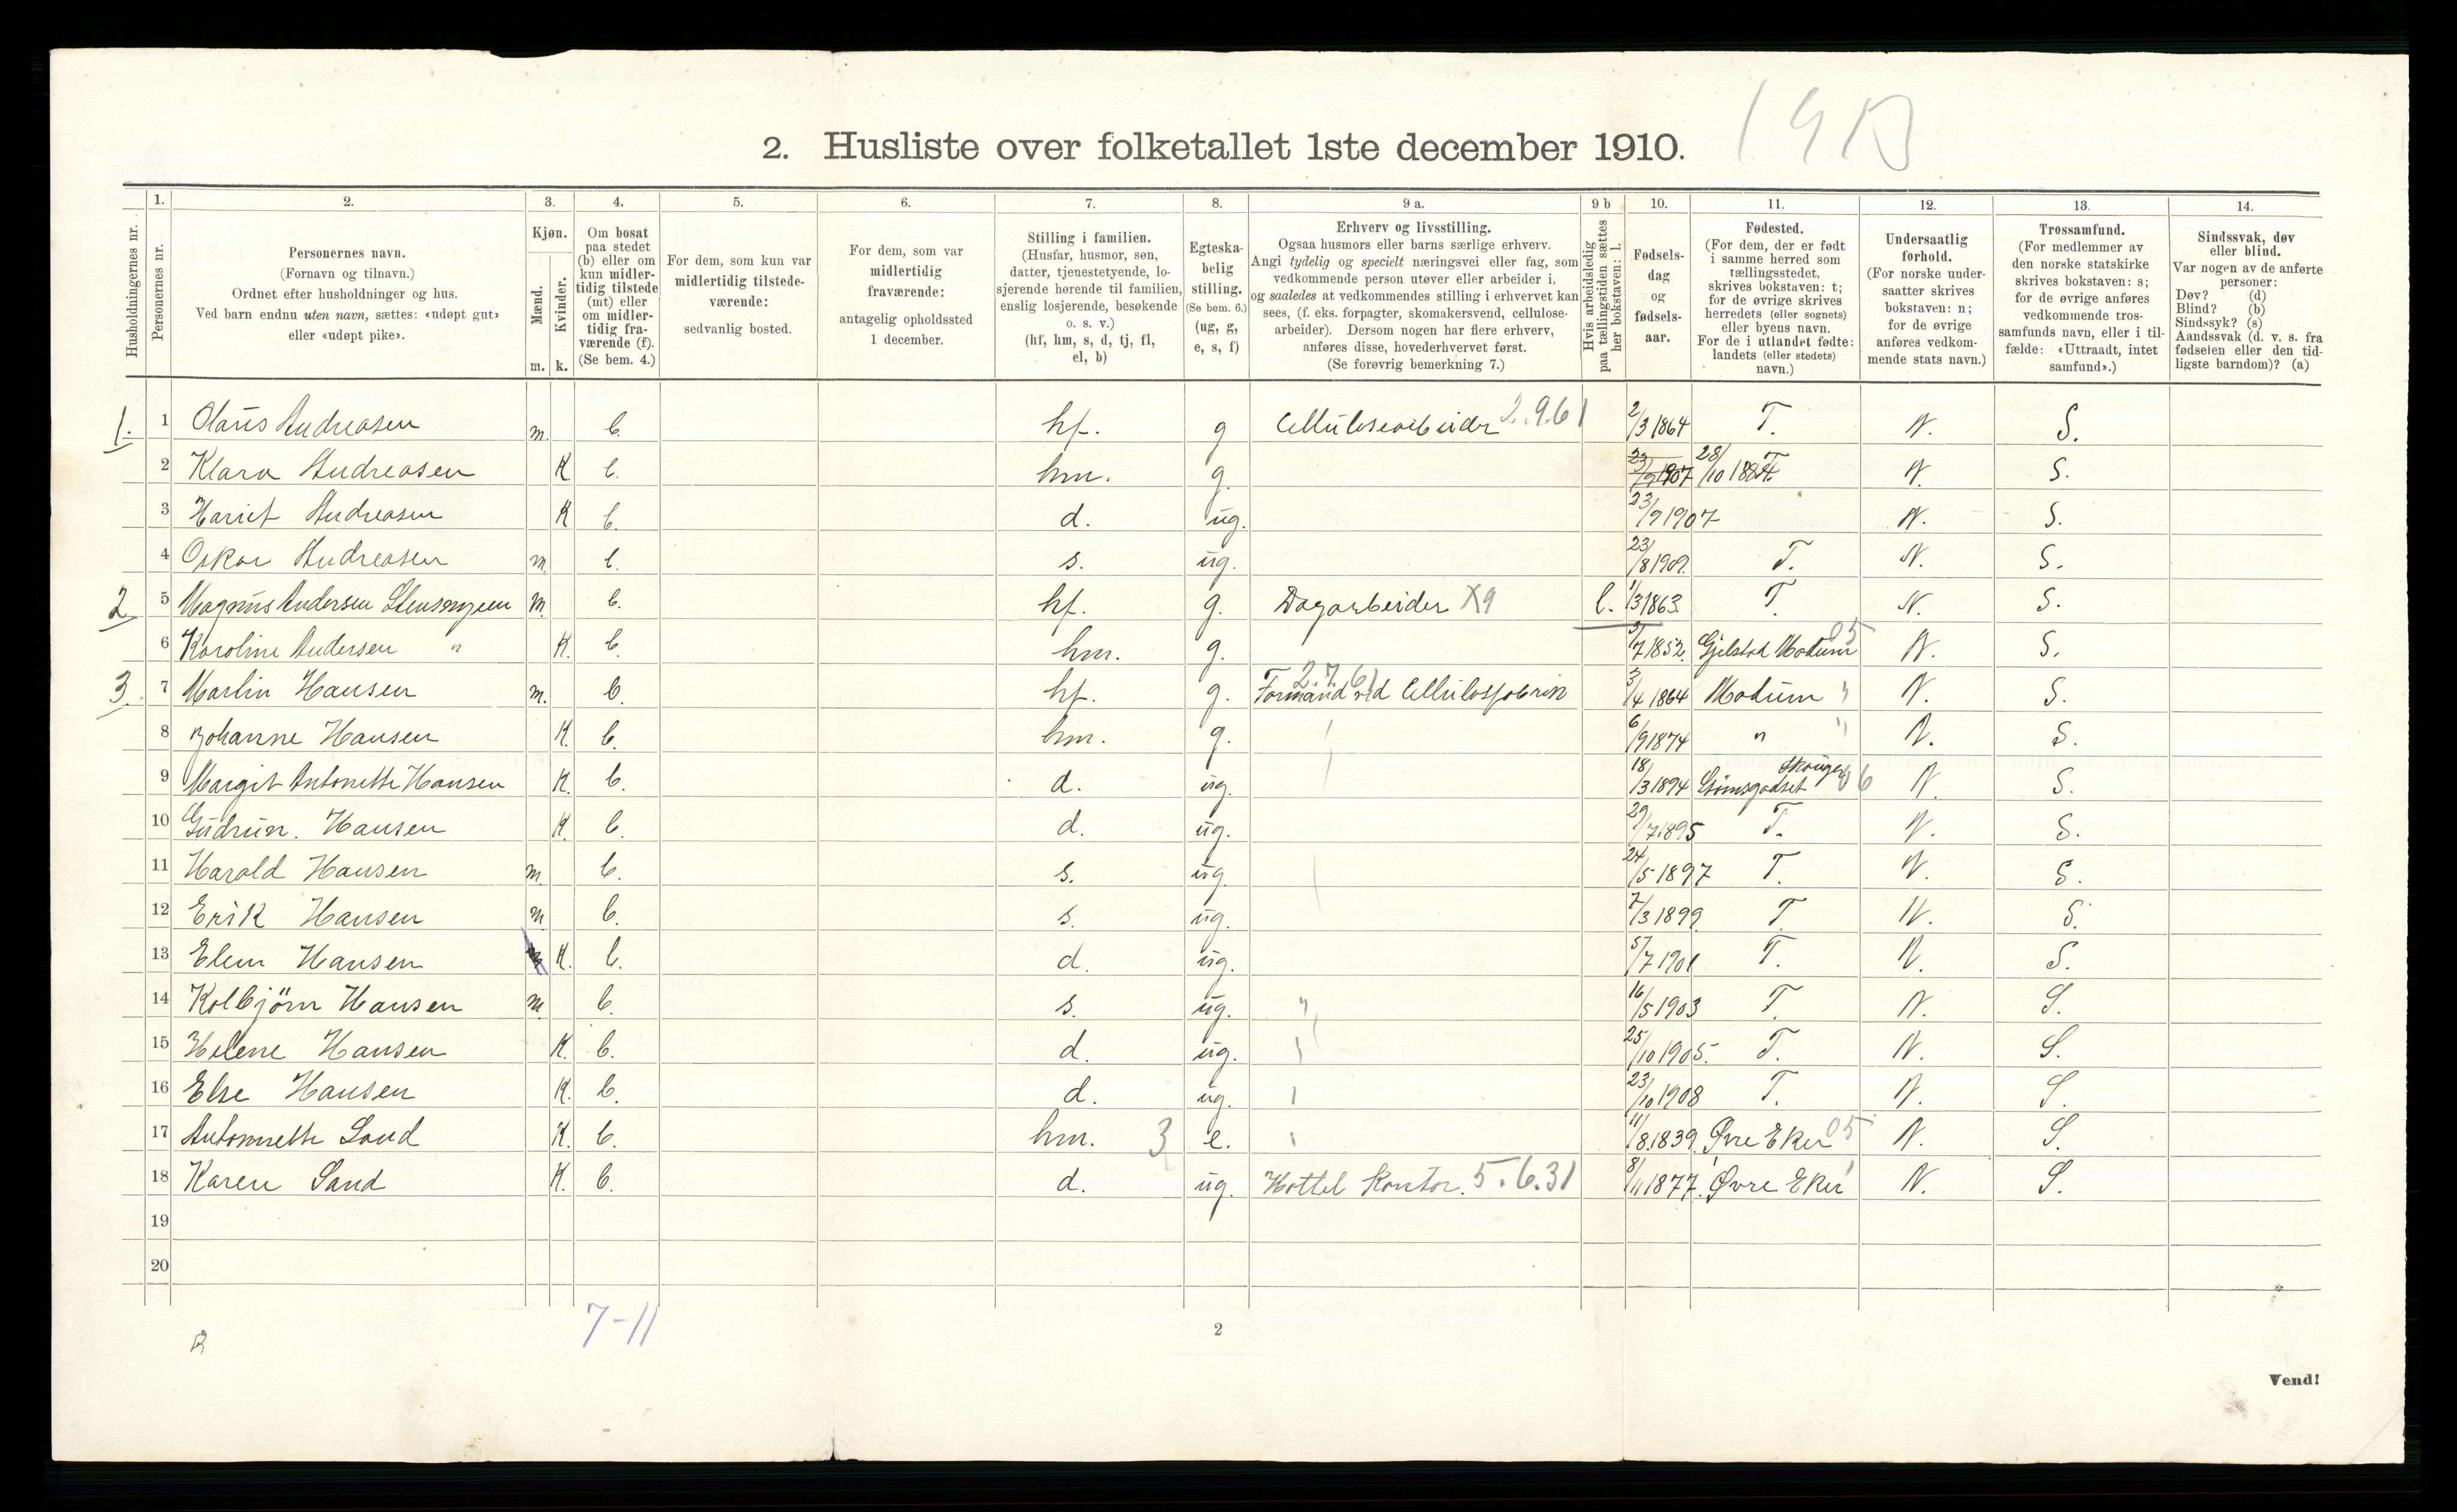 2. Husliste over folketallet 1ste december 1910.
Husholdningernes nr.
1. Personernes nr.
2. Personernes navn. (Fornavn og tilnavn.) Ordnet efter husholdninger og hus. Ved barn endnu uten navn, sættes: «udøpt gut» eller «udøpt pike».
3. Kjøn. Mænd. m. Kvinder. k.
4. Om bosat paa stedet (b) eller om kun midlertidig tilstede (mt) eller om midlertidig fraværende (f). (Se bem. 4.)
5. For dem, som kun var midlertidig tilstedeværende: sedvanlig bosted.
6. For dem, som var midlertidig fraværende: antagelig opholdssted 1 december.
7. Stilling i familien. (Husfar, husmor, søn, datter, tjenestetyende, losjerende hørende til familien, enslig losjerende, besøkende o. s. v.) (hf, hm, s, d, tj, fl, el, b)
8. Egteskabelig stilling. (Se bem. 6.) (ug, g, e, s, f)
9 a. Erhverv og livsstilling. Ogsaa husmors eller barns særlige erhverv. Angi tydelig og specielt næringsvei eller fag, som vedkommende person utøver eller arbeider i, og saaledes at vedkommendes stilling i erhvervet kan sees, (f. eks. forpagter, skomakersvend, cellulosearbeider). Dersom nogen har flere erhverv, anføres disse, hovederhvervet først. (Se forøvrig bemerkning 7.)
9 b Hvis arbeidsledig paa tællingstiden sættes her bokstaven: l.
10. Fødselsdag og fødselsaar.
11. Fødested. (For dem, der er født i samme herred som tællingsstedet, skrives bokstaven: t; for de øvrige skrives herredets (eller sognets) eller byens navn. For de i utlandet fødte: landets (eller stedets) navn.)
12. Undersaatlig forhold. (For norske undersaatter skrives bokstaven: n; for de øvrige anføres vedkommende stats navn.)
13. Trossamfund. (For medlemmer av den norske statskirke skrives bokstaven: s; for de øvrige anføres vedkommende trossamfunds navn, eller i tilfælde: «Uttraadt, intet samfund».)
14. Sindssvak, døv eller blind. Var nogen av de anførte personer: Døv? (d) Blind? (b) Sindssyk? (s) Aandssvak (d. v. s. fra fødselen eller den tidligste barndom)? (a)
1. 1 Olaus Andreasen m. b. hf. g Cellulosearbeider 2.9.61 2/3 1864 T. N. S.
2 Klara Andreasen K b. hm. g. 28/10 1884 T N. S.
3 Hariet Andreasen K b. d. ug. 23/9 1907 N. S.
4 Oskar Andreasen m b. s. ug. 23/8 1909. T. N. S.
2 5 Magnus Andersen Stensmyren m b. hf. g. Dagarbeider X9 l. 1/3 1863. T. N. S.
6 Karoline Andersen " K. b. hm. g. 3/7 1852. Gjelstad Modum 05 N. S.
3. 7 Martin Hansen m. b. hf. g. Formand ved Cellulosfabrik 2.7.61 3/4 1864 Modum " N. S.
8 Johanne Hansen K. b. hm. g. 6/9 1874 " " N. S.
9 Margit Antonette Hansen K. b. d. ug. 18/3 1894 Strømsgodset Skouger 06 N. S.
10 Gudrun. Hansen K. b. d. ug. 29/7 1895 T. N. S.
11 Harald Hansen m. b. s. ug. 24/5 1897 T. N. S.
12 Erik Hansen m. b. s. ug. 7/3 1899. T. N. S.
13 Elen Hansen K. b. d. ug. 5/7 1901 T. N. S.
14 Kolbjörn Hansen m b. s. ug. " 16/5 1903 T. N. S.
15 Helene Hansen K. b. d. ug. 25/10 1905. T. N. S.
16 Else Hansen K. b. d. ug. 23/10 1908 T. N. S.
17 Antonnette Sand K. b. hm. 3 e. 11/8. 1839. Øvre Eker 05 N. S.
18 Karen Sand K. b. d. ug. Hottel Kontor. 5.6.31 8/11 1877. Øvre Eker N. S.
19
20
7-11
2
Vend!